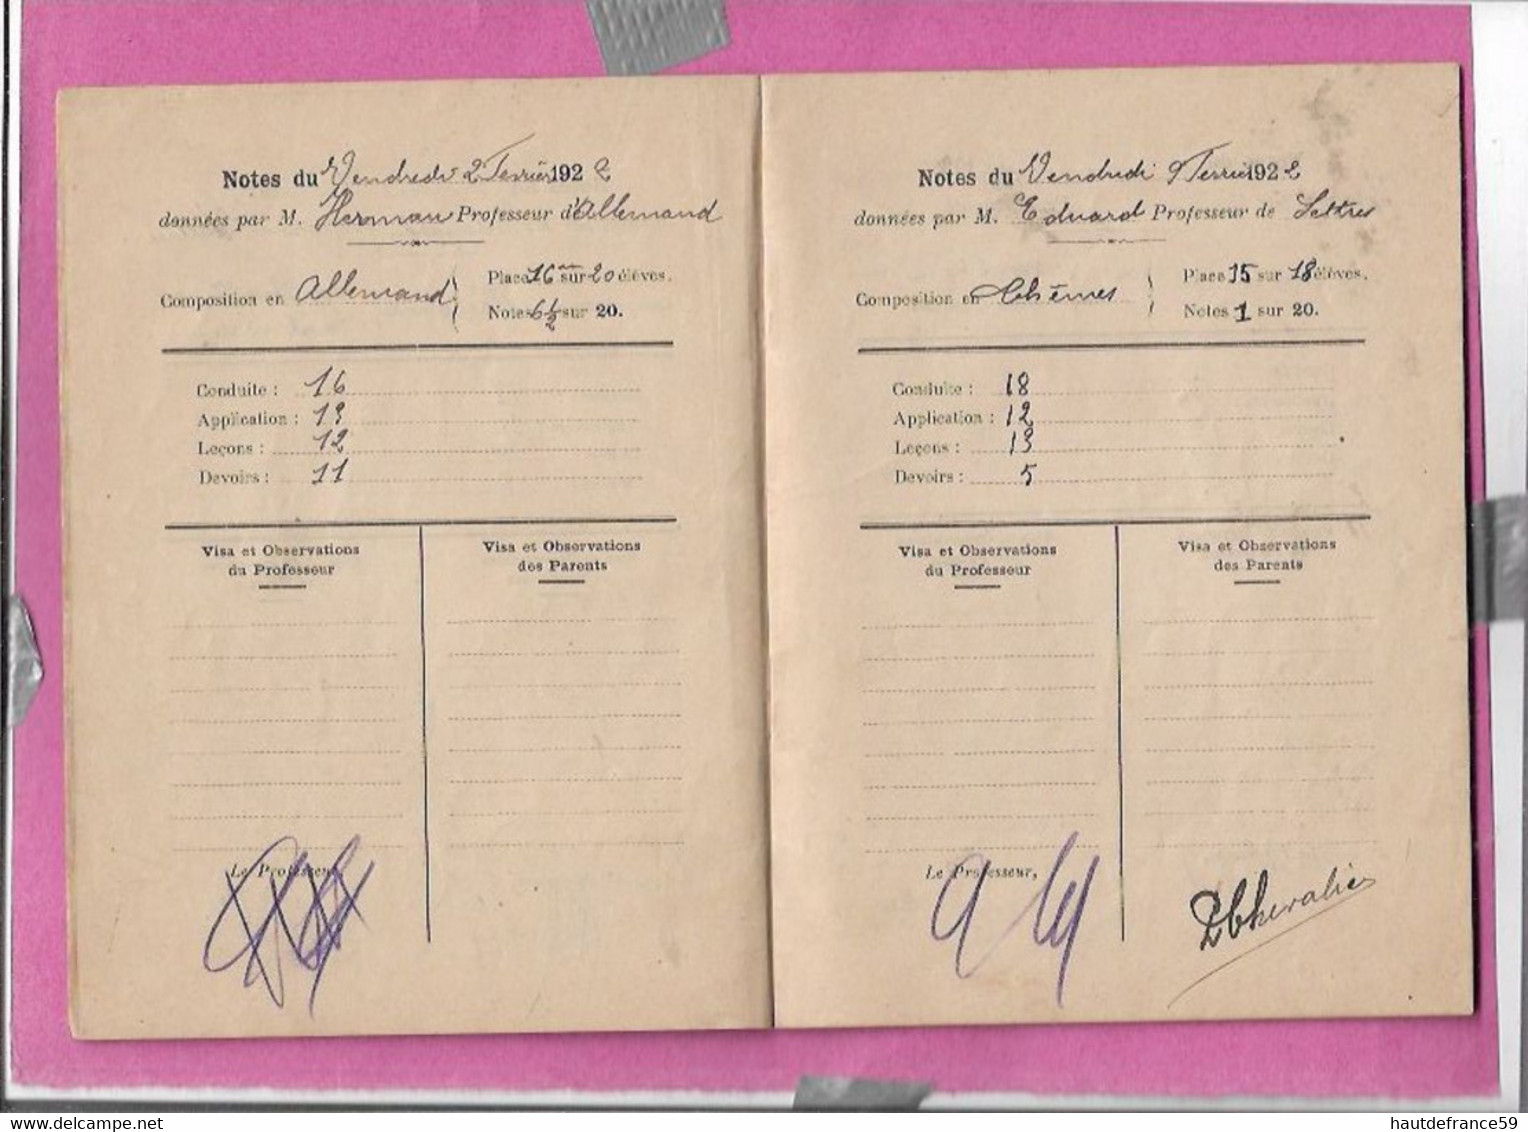 Notes du Vendredi 2 Fevrier 1922
données par M. Herman Professeur d'Allemand
Composition en Allemand
Place 16 sur 20 élèves.
Notes 6½ sur 20.
Conduite : 16
Application : 13
Leçons : 12
Devoirs : 11
Visa et Observations
du Professeur
Visa et Observations
des Parents
Le Professeur
Notes du Vendredi 9 Fevrier 1922
données par M. Eduard Professeur de Lettres
Composition en Thèmes
Place 15 sur 18 élèves.
Notes 1 sur 20.
Conduite : 18
Application : 12
Leçons : 13
Devoirs : 5
Visa et Observations
du Professeur
Visa et Observations
des Parents
Le Professeur,
Chevalier
hautdefrance59